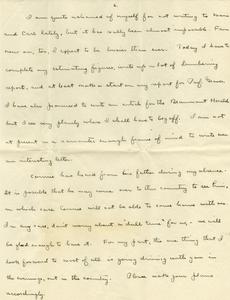 2.
I am quite ashamed of myself for not writing to Mama
and Carl lately, but it has really been almost impossible. From
now on, too, I expect to be busier than ever. Today I have to
complete my estimating figures, write up a lot of lumbering
report, and at least make a start on my report for Prof. Graves.
I have also promised to write an article for the Beaumont Herald
but I see very plainly where I shall have to beg off. I am not
at present in a sarcastic enough frame of mind to write
an interesting letter.
Connie has heard from his father during my absence.
It is possible that he may come over to this country to see
in which case Connie will not be able to come home with me.
In any case, don't worry about a "dull time" for us, - we will
be glad enough to have it. For my part, the one thing that I
look forward to most of all is going driving with you in
the evenings, out in the country. Please make your plans
accordingly.